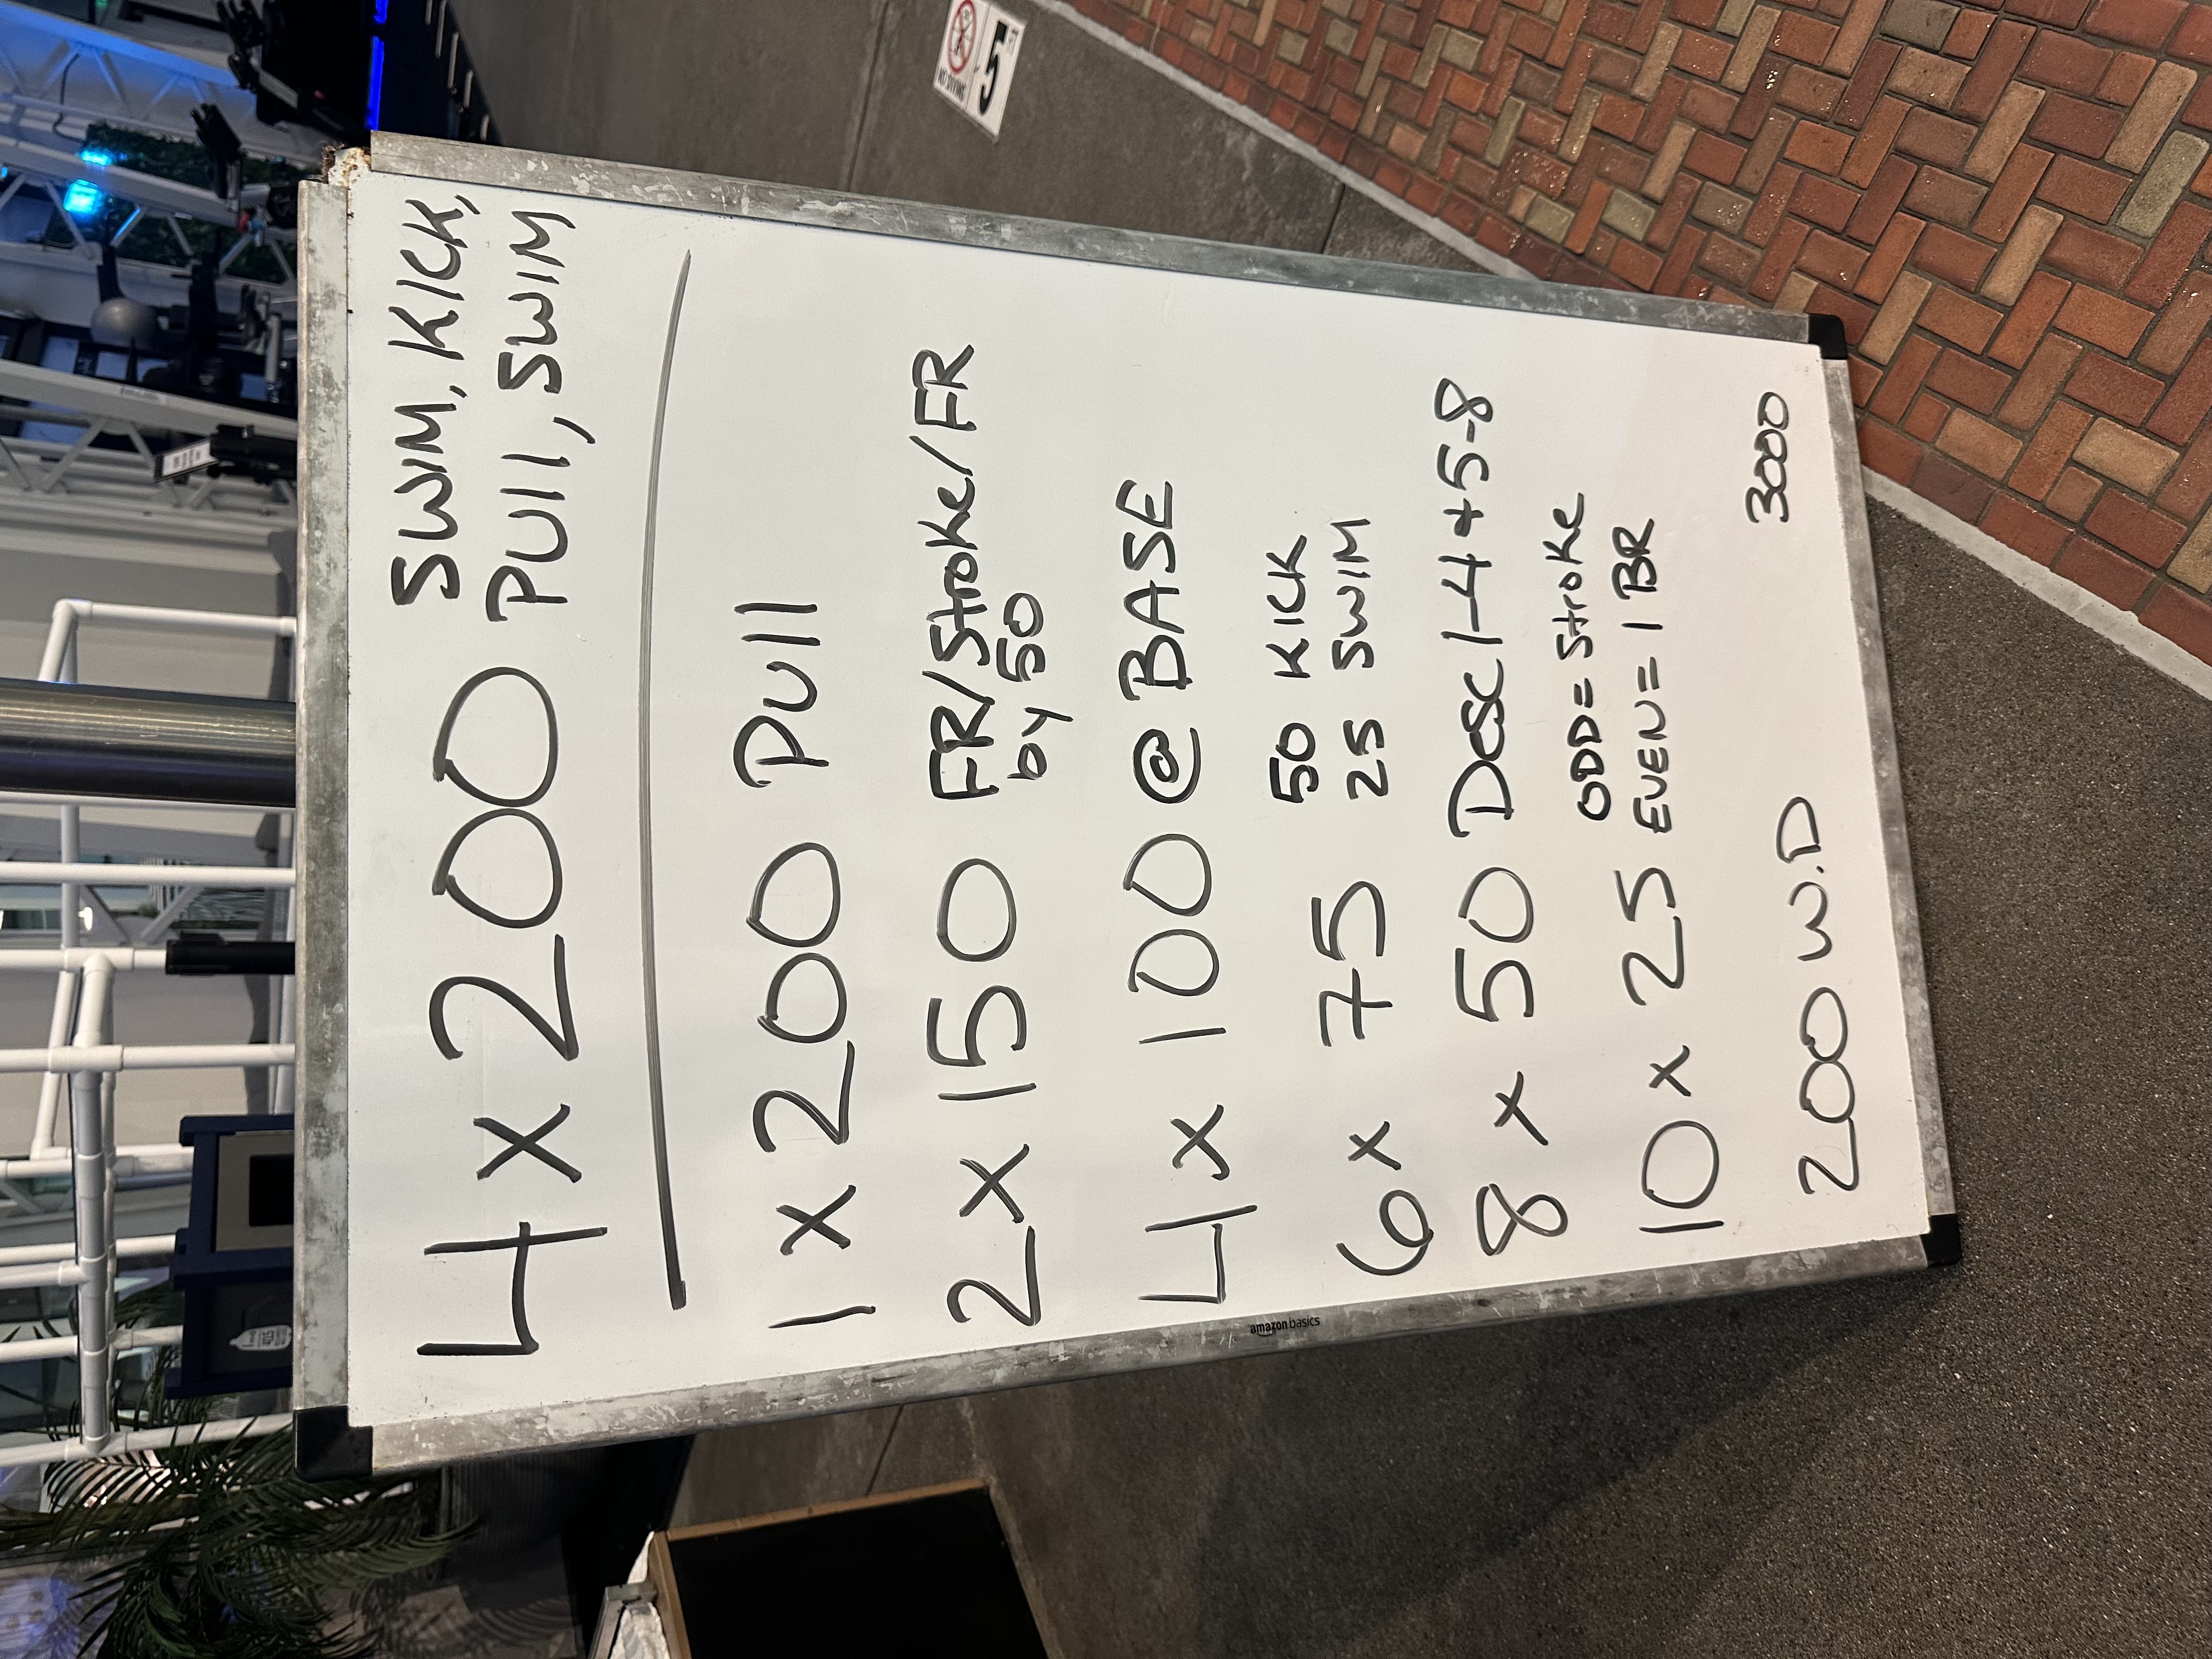 4 x 200 SWIM, KICK,
PUll, SWIM
1 x 200 PUll
2 x 150 FR/Stroke/FR
by 50
4 x 100 @ BASE
6 x 75 50 KICK
25 SWIM
8 x 50 Desc 1-4 + 5-8
10 x 25 ODD = StroKe
EVEN = 1 BR
200 W.D 3000
amazon basics
NO DIVING
5 FT